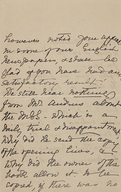 however noticed your appea
in some of our English
Newspapers, & shall be
glad if you have had an
satisfactory results
We still hear nothing
from Mr Andrews about
the MSS. which is an
truly trial & disappointment
Why did he send the copy
of the opening lines and
Why did the owner of the
book allow it to be
copied if there was no